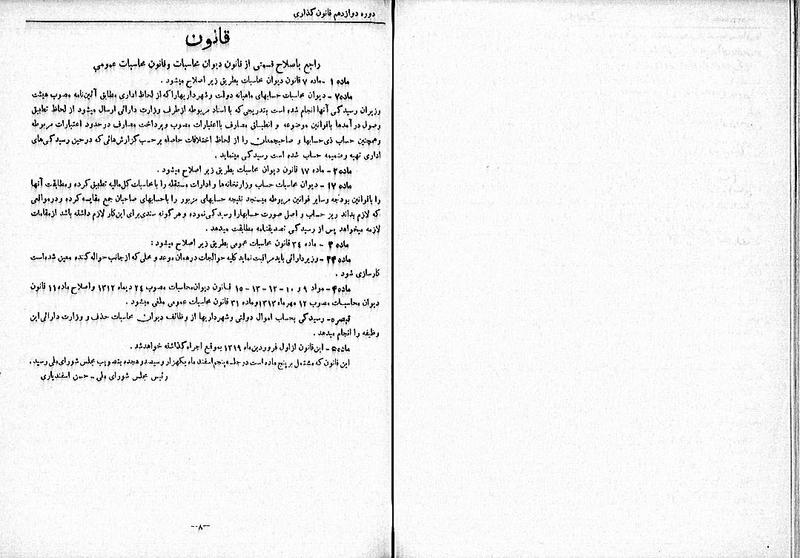 دوره دوازدهم قانون‌گذاری
قانون
راجع باصلاح قسمتی از قانون دیوان محاسبات و قانون محاسبات عمومی
ماده ۱ - ماده ۷ قانون دیوان محاسبات بطریق زیر اصلاح میشود .
ماده ۷ - دیوان محاسبات حسابهای ماهیانه دولت و شهرداریها را که از لحاظ اداری مطابق آئین‌نامه مصوب هیئت
وزیران رسیدگی آنها انجام شده است بتدریجی که با اسناد مربوطه از طرف وزارت دارائی ارسال میشود از لحاظ تطبیق
وصول درآمدها با قوانین موضوعه و انطباق مصارف با اعتبارات مصوب و پرداخت مصارف در حدود اعتبارات مربوطه
و همچنین حساب ذی‌حسابها و صاحبجمعان را از لحاظ اختلافات حاصله بر حسب گزارش‌هائی که در حین رسیدگی‌های
اداری تهیه و ضمیمه حساب شده است رسیدگی مینماید .
ماده ۲ - ماده ۱۷ قانون دیوان محاسبات بطریق زیر اصلاح میشود .
ماده ۱۷ - دیوان محاسبات حساب وزارتخانه‌ها و ادارات مستقله را با محاسبات کل مالیه تطبیق کرده و مطابقت آنها
را با قوانین بودجه و سایر قوانین مربوطه میسنجد نتیجه حسابهای مزبور را با حسابهای صاحبان جمع مقایسه کرده و در مواقعی
که لازم بداند ریز حساب و اصل صورت حسابها را رسیدگی نموده و هر گونه سندی برای این کار لازم داشته باشد از مقامات
لازمه میخواهد پس از رسیدگی تصدیقنامه مطابقت میدهد .
ماده ۳ - ماده ۲۴ قانون محاسبات عمومی بطریق زیر اصلاح میشود :
ماده ۲۴ - وزیر دارائی باید مراقبت نماید کلیه حوالجات در همان موعد و محلی که از جانب حواله کننده معین شده است
کارسازی شود .
ماده ۴ - مواد ۹ و ۱۰ - ۱۲ - ۱۳ - ۱۵ قانون دیوان محاسبات مصوب ۲۴ دیماه ۱۳۱۲ و اصلاح ماده ۱۱ قانون
دیوان محاسبات مصوب ۱۲ مهر ماه ۱۳۱۳ و ماده ۳۱ قانون محاسبات عمومی ملغی میشود .
تبصره - رسیدگی بحساب اموال دولتی و شهرداریها از وظائف دیوان محاسبات حذف و وزارت دارائی این
وظیفه را انجام میدهد .
ماده ۵ - این قانون از اول فروردین ماه ۱۳۱۹ بموقع اجراء گذاشته خواهد شد .
این قانون که مشتمل بر پنج ماده است در جلسه پنجم اسفند ماه یکهزار و سیصد و هجده بتصویب مجلس شورای ملی رسید .
رئیس مجلس شورای ملی - حسن اسفندیاری
-۸-